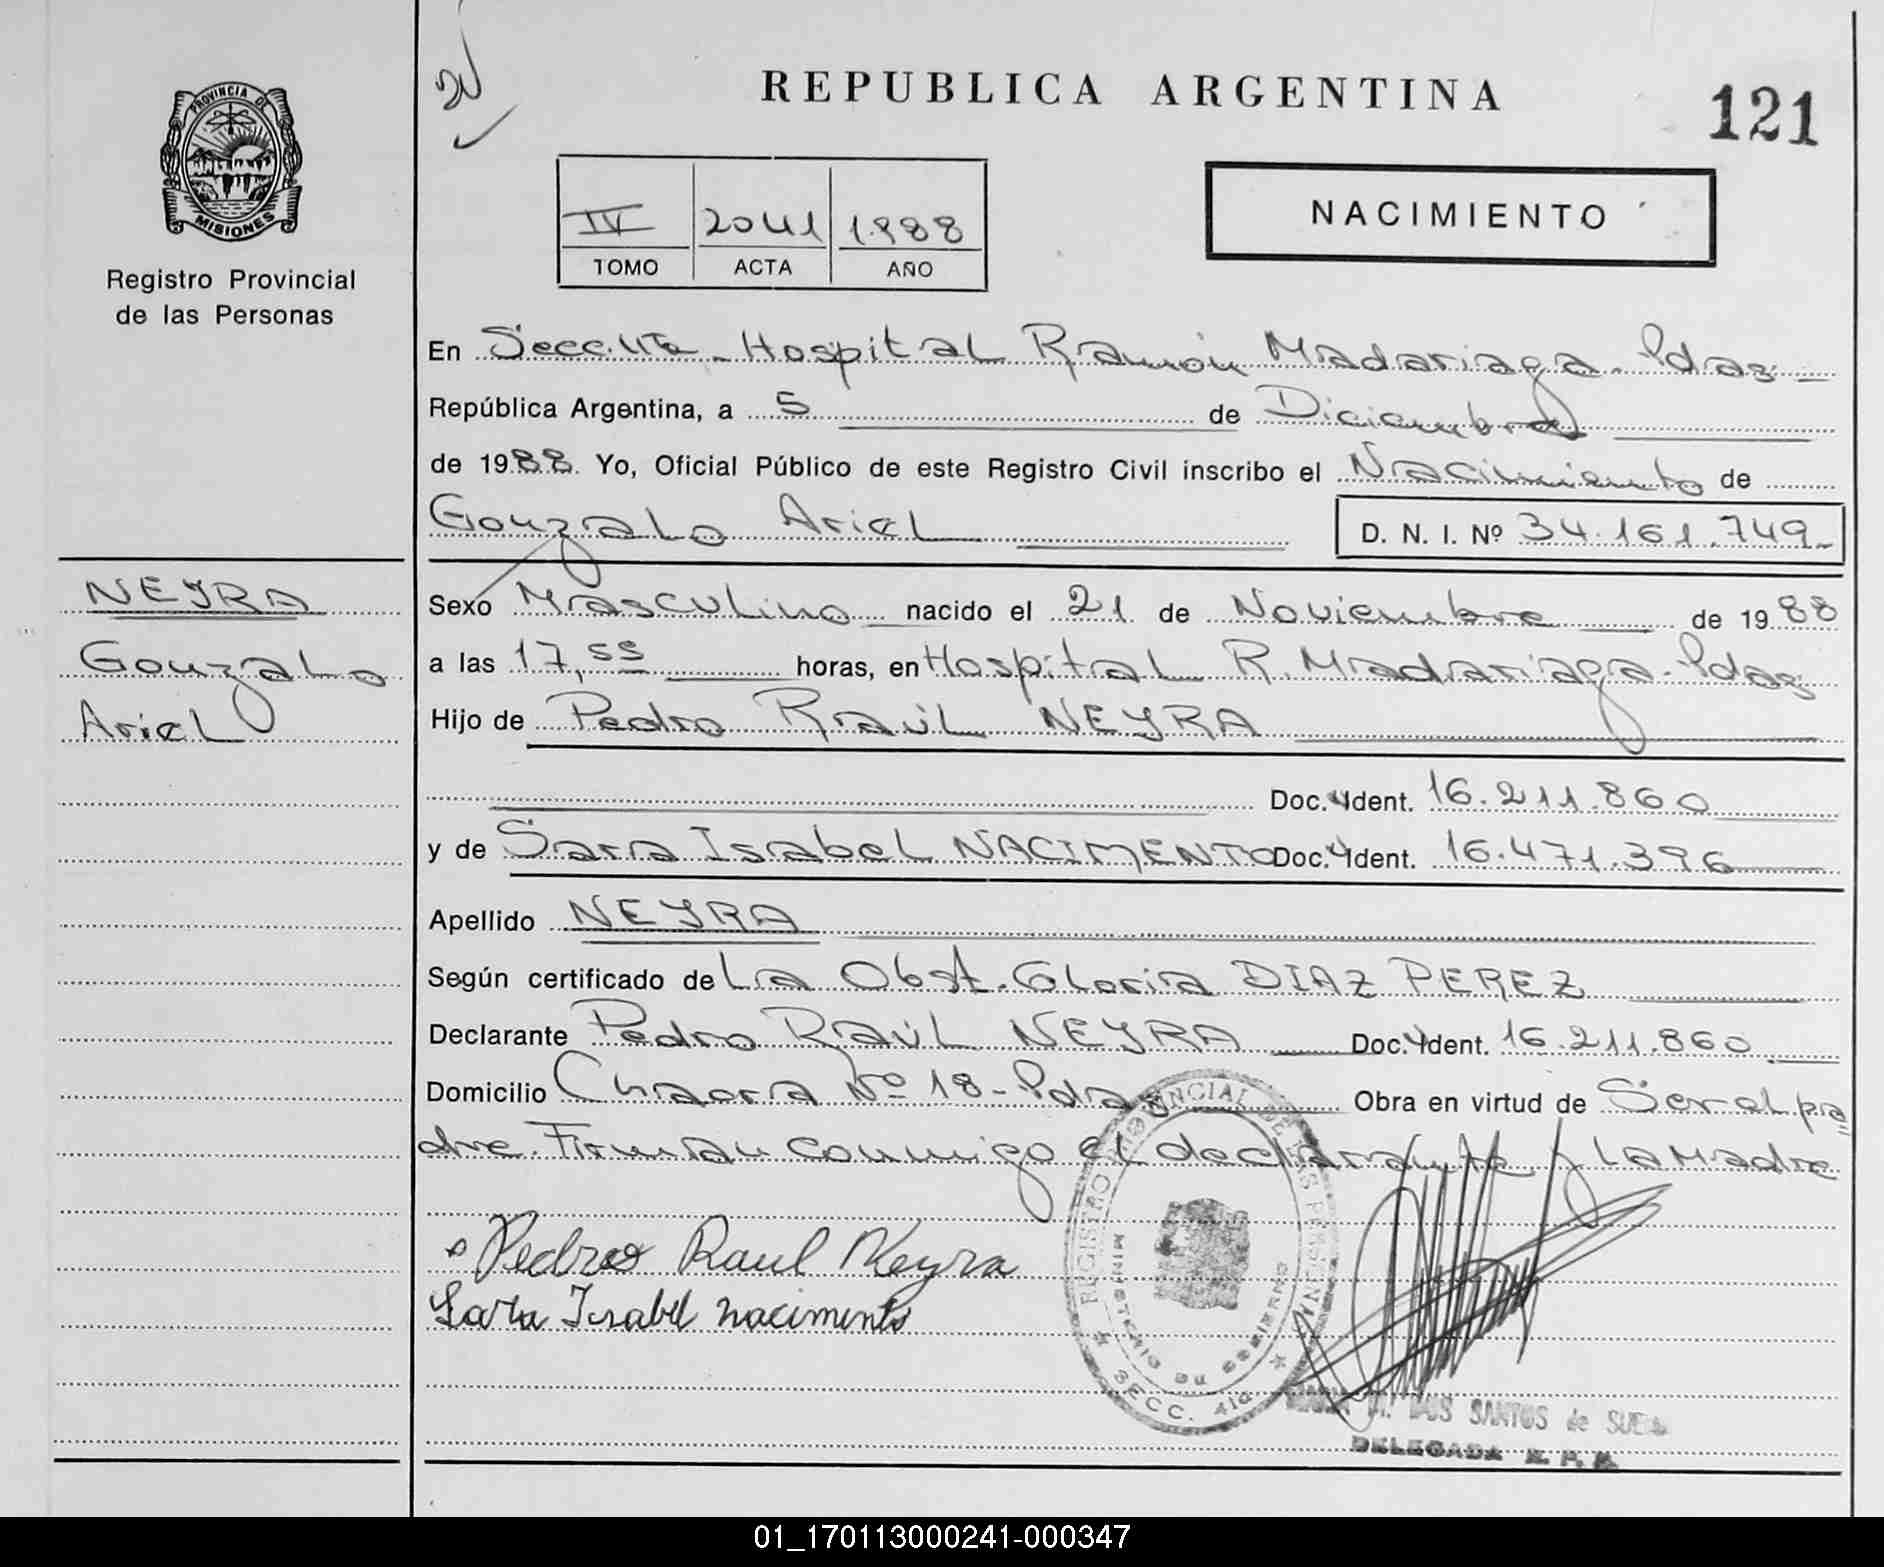 PROVINCIA DE
MISIONES
Registro Provincial
de las Personas
NEYRA
Gonzalo
Ariel
REPUBLICA ARGENTINA
121
IV 2041 1.988
TOMO ACTA AÑO
NACIMIENTO
En Secc. 4ta - Hospital Ramón Madariaga - Pdas -
República Argentina, a 5 de Diciembre
de 1988. Yo, Oficial Público de este Registro Civil inscribo el Nacimiento de
Gonzalo Ariel D. N. I. Nº 34.161.749-
Sexo Masculino nacido el 21 de Noviembre de 1988
a las 17,55 horas, en Hospital R. Madariaga - Pdas
Hijo de Pedro Raúl NEYRA
Doc. Ident. 16.211.860
y de Sara Isabel NACIMENTO Doc. Ident. 16.471.396
Apellido NEYRA
Según certificado de La Obst. Gloria DIAZ PEREZ
Declarante Pedro Raúl NEYRA Doc. Ident. 16.211.860
Domicilio Chacra Nº 18 - Pdas Obra en virtud de Ser el pa
dre. Firman conmigo el declarante y la Madre
Pedro Raul Neyra
Sara Isabel nacimento
REGISTRO PROVINCIAL DE LAS PERSONAS
MINISTERIO DE GOBIERNO
SECC. 4ta
DOS SANTOS de
DELEGADA R. P. P.
01_170113000241-000347